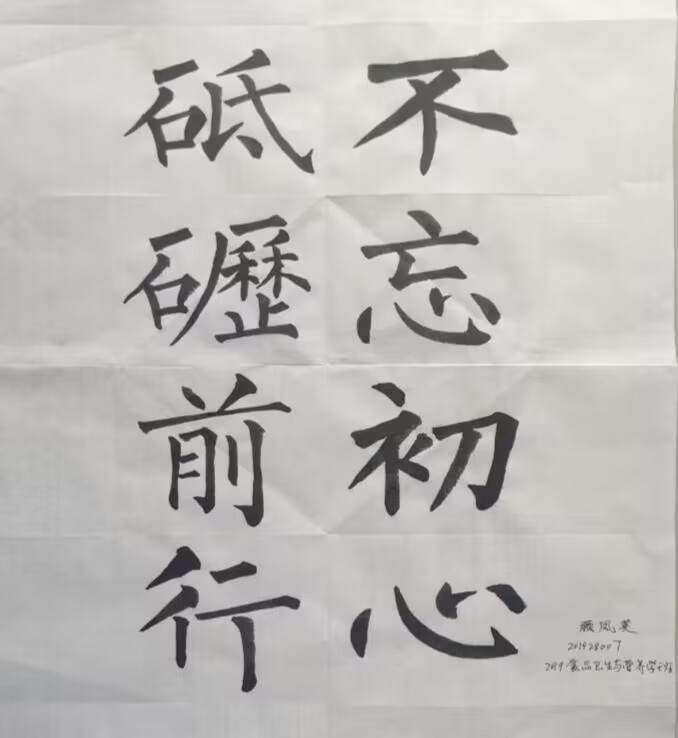 不忘初心
砥礰前行
凤英
201928007
2019食品卫生与营养学班